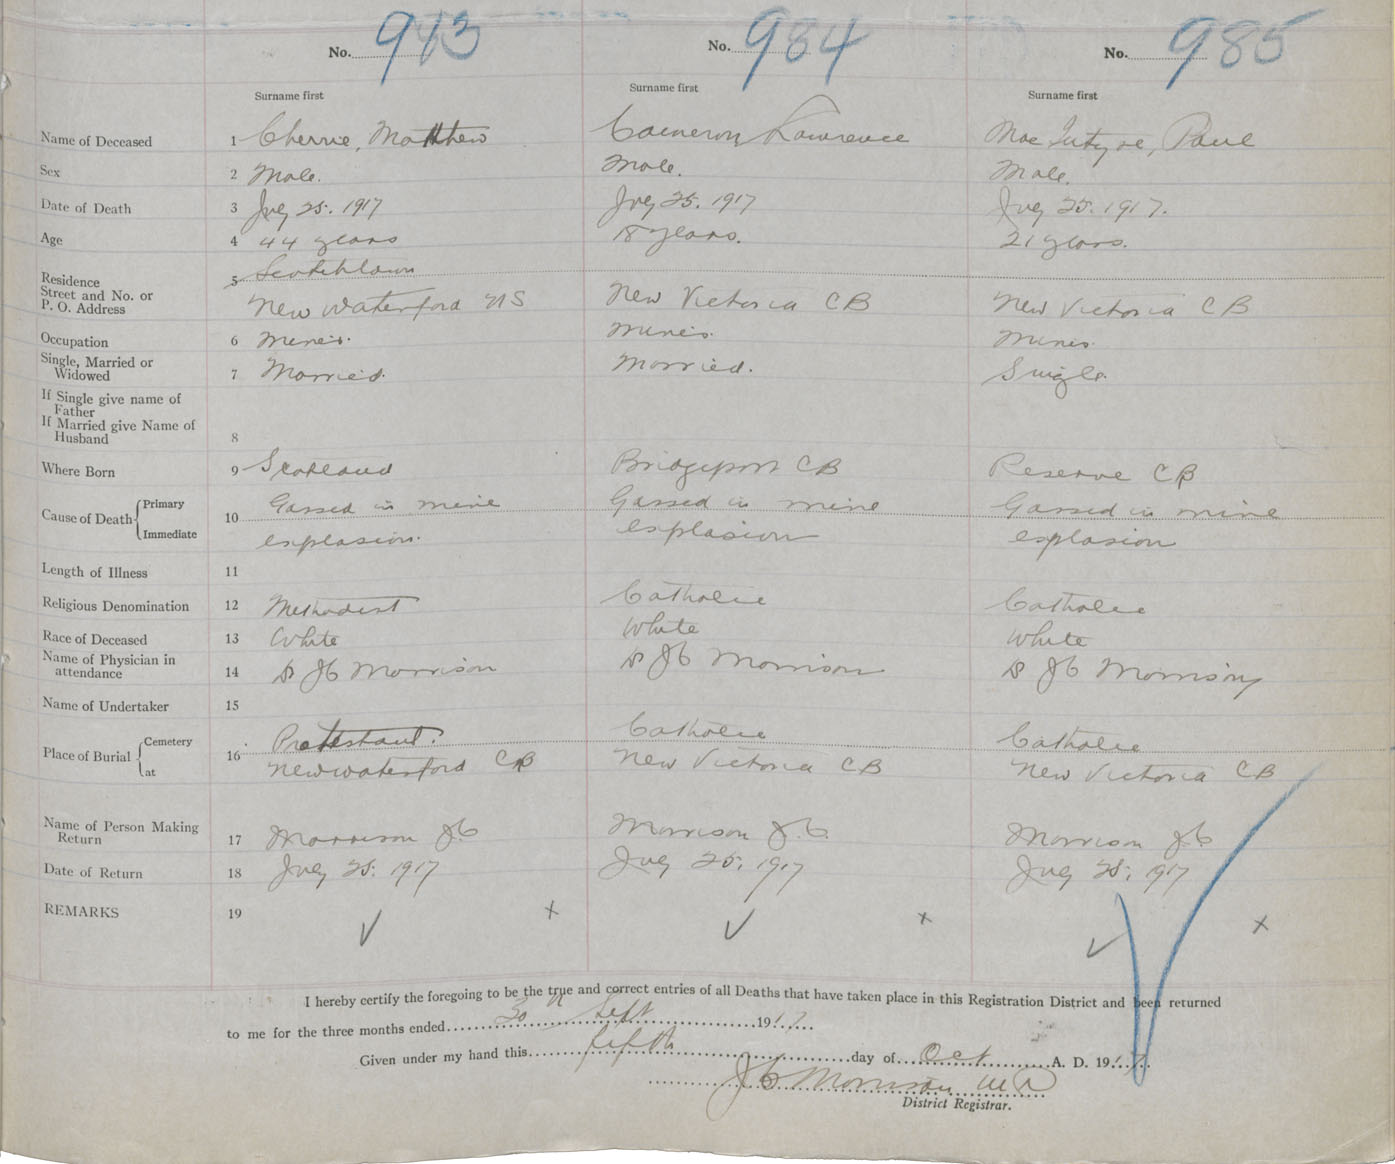 No. 983 No. 984 No. 985
Surname first Surname first Surname first
Name of Deceased 1 Cherrie, Matthew Cameron, Lawrence Mac Intyre, Paul
Sex 2 Male. Male. Male.
Date of Death 3 July 25. 1917 July 25. 1917 July 25. 1917.
Age 4 44 years 18 years. 21 years.
Residence 5 Scotchtown
Street and No. or
P. O. Address New Waterford NS New Victoria CB New Victoria CB
Occupation 6 Miner. Miner. Miner.
Single, Married or
Widowed 7 Married. Married. Single.
If Single give name of
Father
If Married give Name of
Husband 8
Where Born 9 Scotland Bridgeport CB Reserve CB
Cause of Death Primary 10 Gassed in mine Gassed in mine Gassed in mine
Immediate explosion. explosion explosion
Length of Illness 11
Religious Denomination 12 Methodist Catholic Catholic
Race of Deceased 13 White White White
Name of Physician in
attendance 14 Dr JC Morrison Dr JC Morrison Dr JC Morrison
Name of Undertaker 15
Place of Burial Cemetery 16 Protestant. Catholic Catholic
at New Waterford CB New Victoria CB New Victoria CB
Name of Person Making
Return 17 Morrison JC Morrison J.C. Morrison JC
Date of Return 18 July 25. 1917 July 25. 1917 July 25. 1917
REMARKS 19 ✓ x ✓ x ✓ x
I hereby certify the foregoing to be the true and correct entries of all Deaths that have taken place in this Registration District and been returned
to me for the three months ended 30th Sept 1917.
Given under my hand this fifth day of Oct A. D. 1917.
JC Morrison MD
District Registrar.